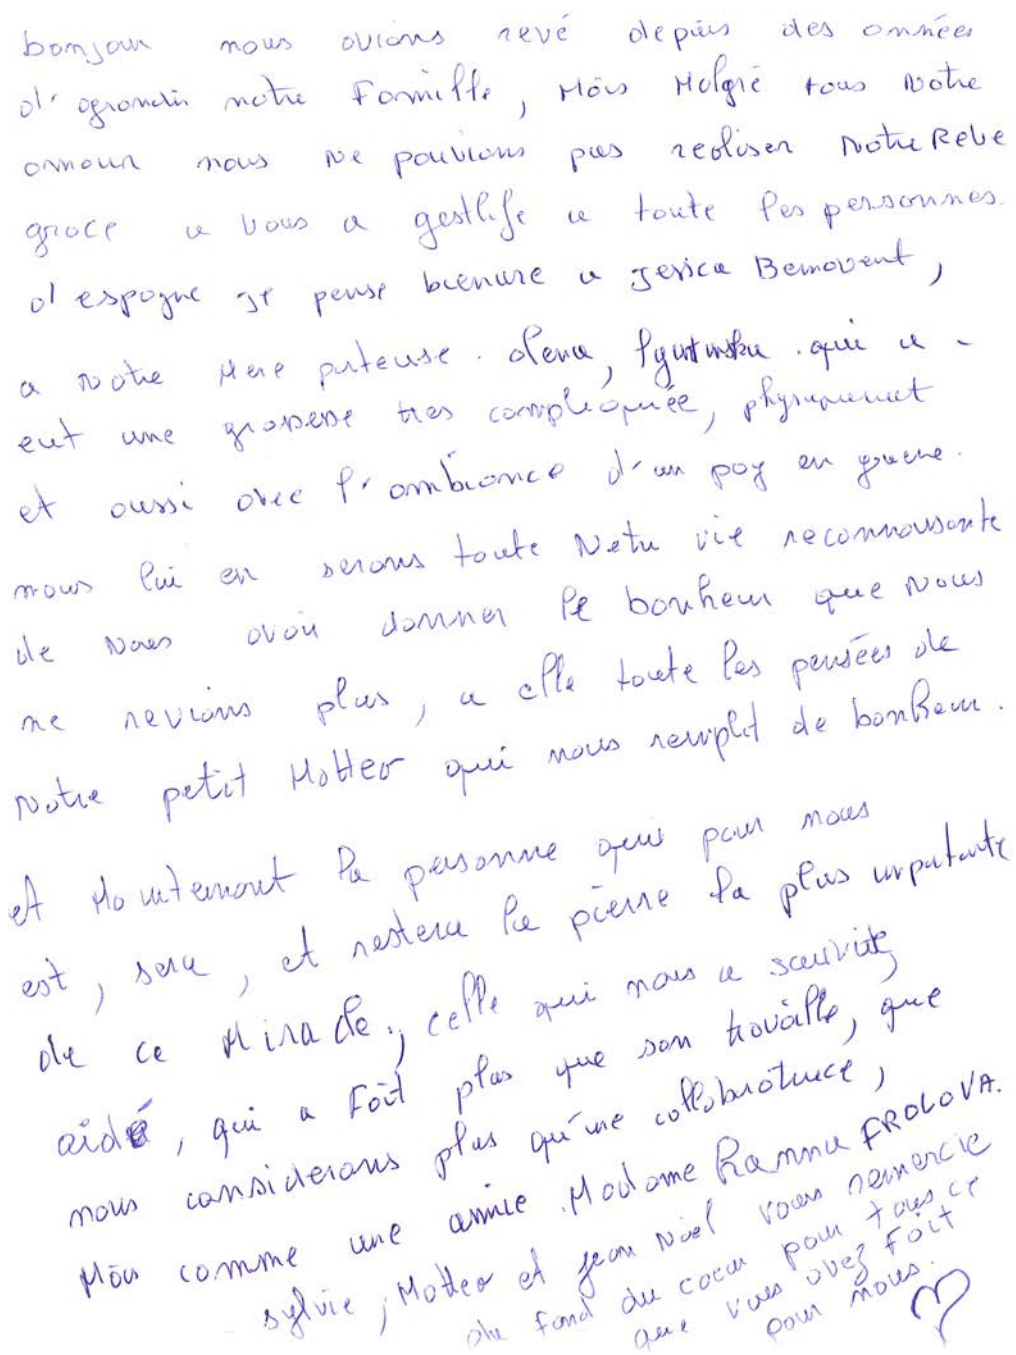 bonjour nous avions revé depuis des années
d'agrandir notre Famille, Mais Malgré tous Notre
amour nous Ne pouvions pas realiser Notre Reve
grace a vous a gestlife a toute les personnes.
d'espagne je pense bienure a Jesica Benavent,
a Notre Mere porteuse. olena, qui a
eut une grossesse tres compliquée, physiquement
et aussi avec l'ambiance d'un pay en guerre.
nous lui en serons toute Notre vie reconnaissante
de Nous avoir donner le bonheur que Nous
ne revions plus, a elle toute les pensées de
Notre petit Matteo qui nous remplit de bonheur.
et Maintenant la personne qui pour nous
est, sera, et restera la pierre la plus importante
de ce Miracle, celle qui nous a
aidé, qui a Fait plus que son travaille, que
nous considerons plus qu'une collobratrice,
Mais comme une amie. Madame Hanna FROLOVA.
sylvie, Matteo et jean Noel vous remercie
du fond du coeur pour tous ce
que vous avez Fait
pour nous.